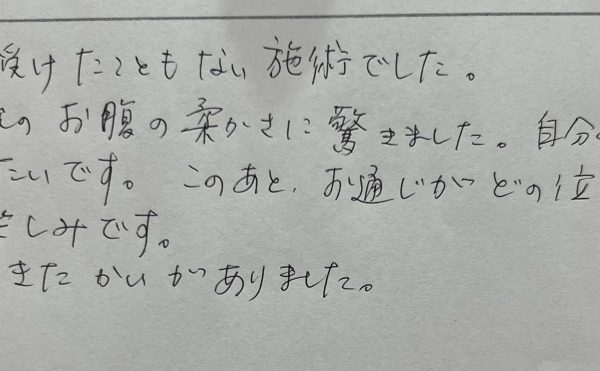 受けたこともない施術でした。
のお腹の柔かさに驚きました。自分
たいです。このあと、お通じがどの位
楽しみです。
きたかいがありました。